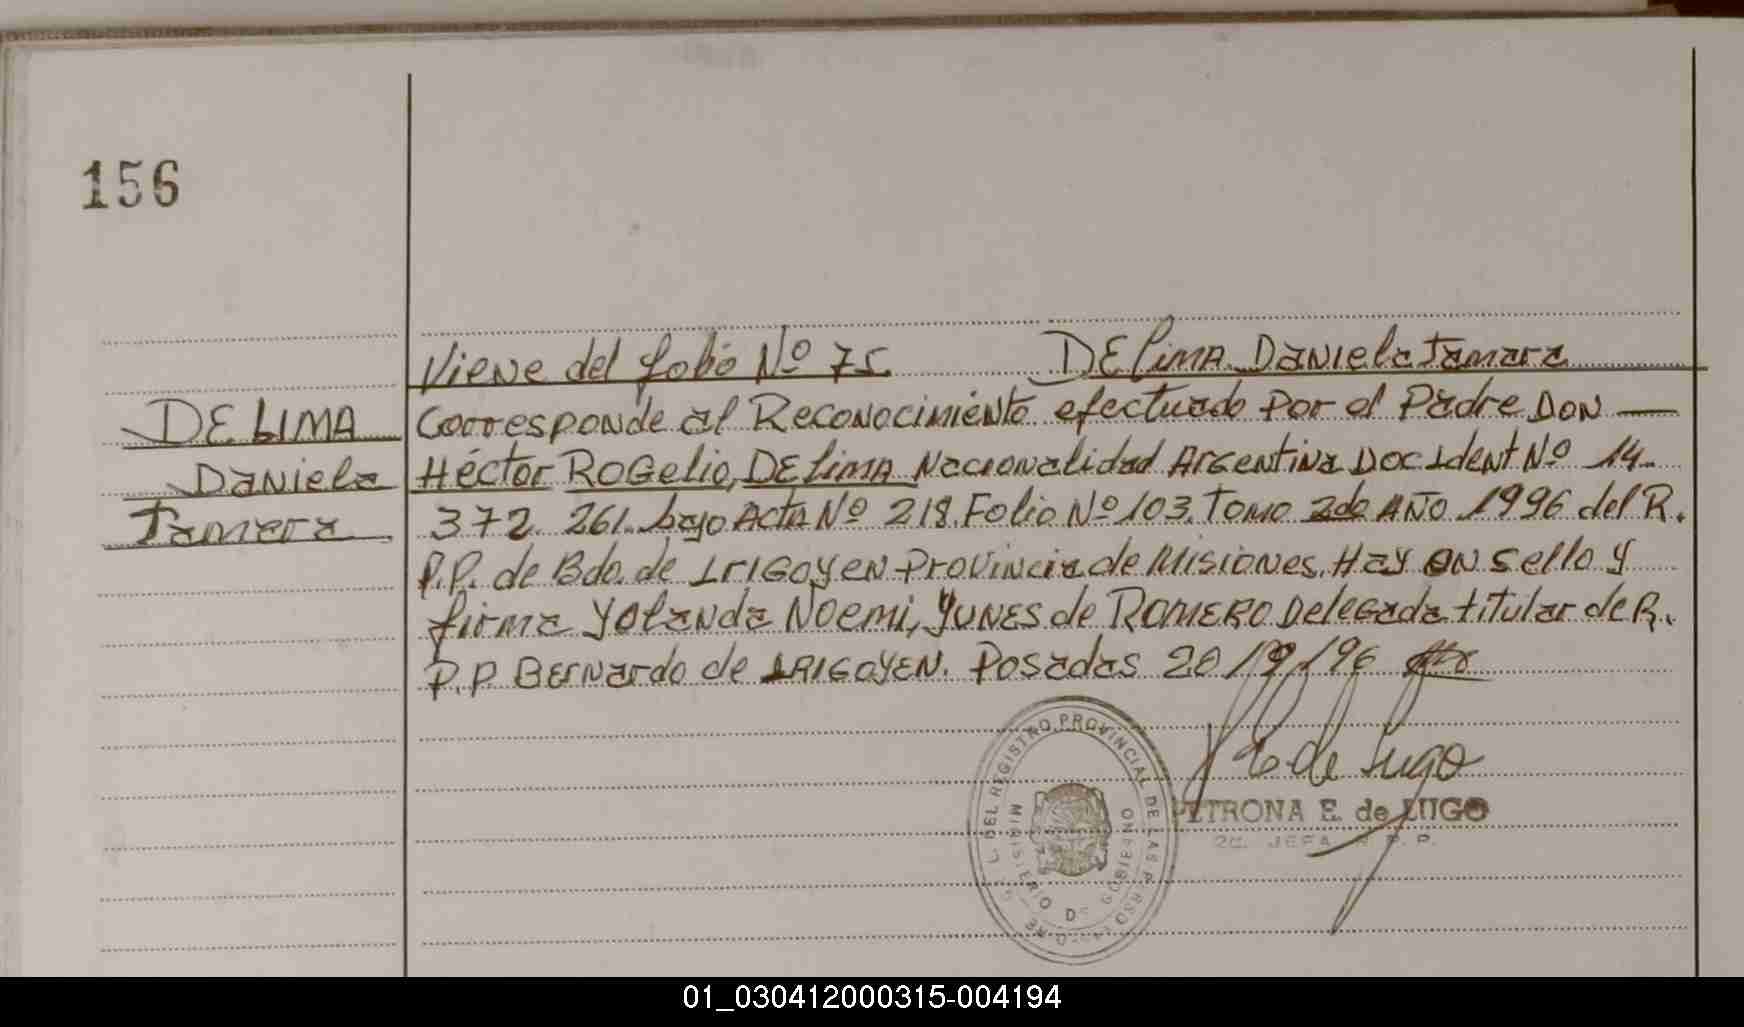 156
Viene del folio Nº 75 DE LIMA Daniela Tamara
DE LIMA
Daniela
Tamara
Corresponde al Reconocimiento efectuado por el Padre DON
Héctor ROGelio, DE LIMA Nacionalidad Argentina Doc Ident Nº 14.
372.261. bajo Acta Nº 218 Folio Nº 103. Tomo 2do AÑO 1996 del R.
P.P. de Bdo. de IRIGOYEN Provincia de Misiones. Hay un sello y
firma Yolanda Noemi, YUNES de ROMERO Delegada titular de R.
P.P. Bernardo de IRIGOYEN. Posadas 20/9/96
E de Lugo
PETRONA E. de LUGO
2a. JEFA R. P. P.
DEL REGISTRO PROVINCIAL DE LAS PERSO
MINISTERIO DE GOBIERNO
01_030412000315-004194